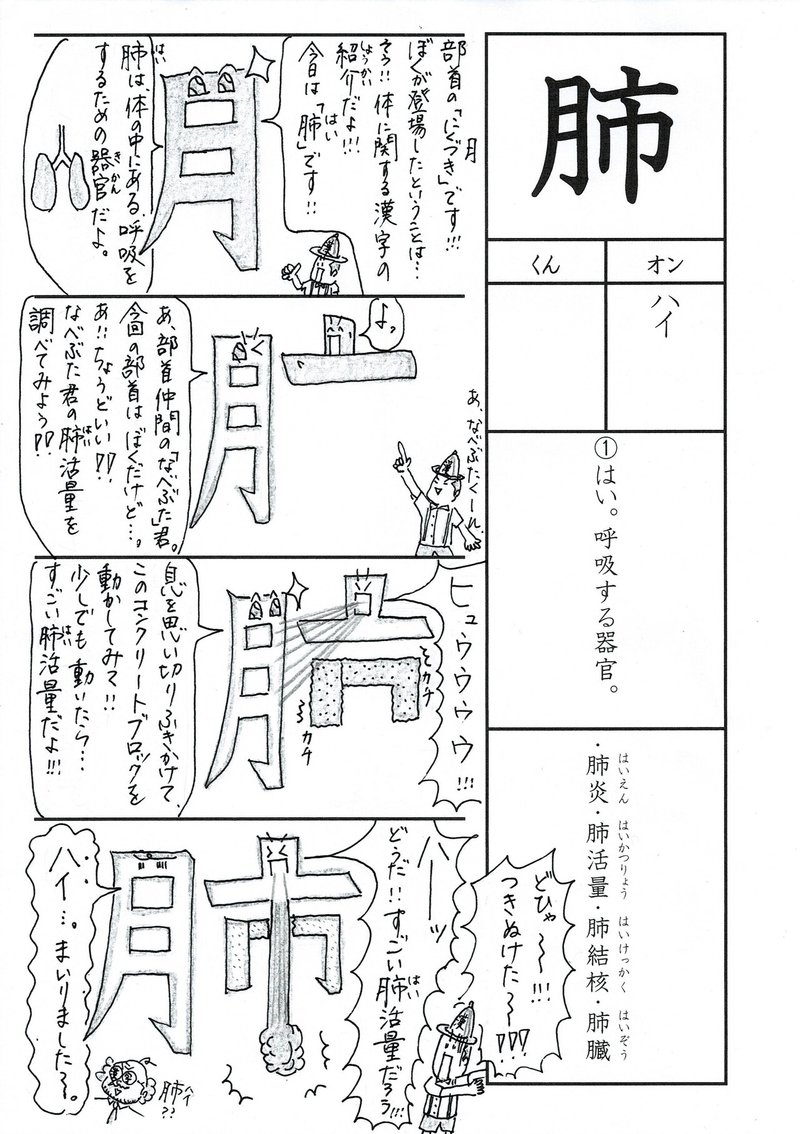 肺
オン
くん
ハイ
①はい。呼吸する器官。
・肺炎・肺活量・肺結核・肺臓
はいえん
はいかつりょう
はいけっかく
はいぞう
部首の「にくづき」です!!!
月
ぼくが登場したということは…
そう!!体に関する漢字の
紹介だよ!!!
しょうかい
今日は「肺」です!!
はい
肺は、体の中にある、呼吸を
はい
するための器官だよ。
きかん
あ、なべぶたくーん。
よっ。
あ、部首仲間の「なべぶた」君。
今回の部首はぼくだけど…。
あ!!ちょうどいい!!
なべぶた君の肺活量を
はい
調べてみよう!!
ヒュウゥゥウ!!!
カチ
カチ
息を思い切りふきかけて、
このコンクリートブロックを
動かしてみて!!
少しでも動いたら…
すごい肺活量だよ!!!
はい
どひゃ～～!!!
つきぬけた～～!!!
ハーッ
どうだ!!すごい肺活量だろう!!!
はい
ハイ…。まいりました～。
肺
ハイ
??